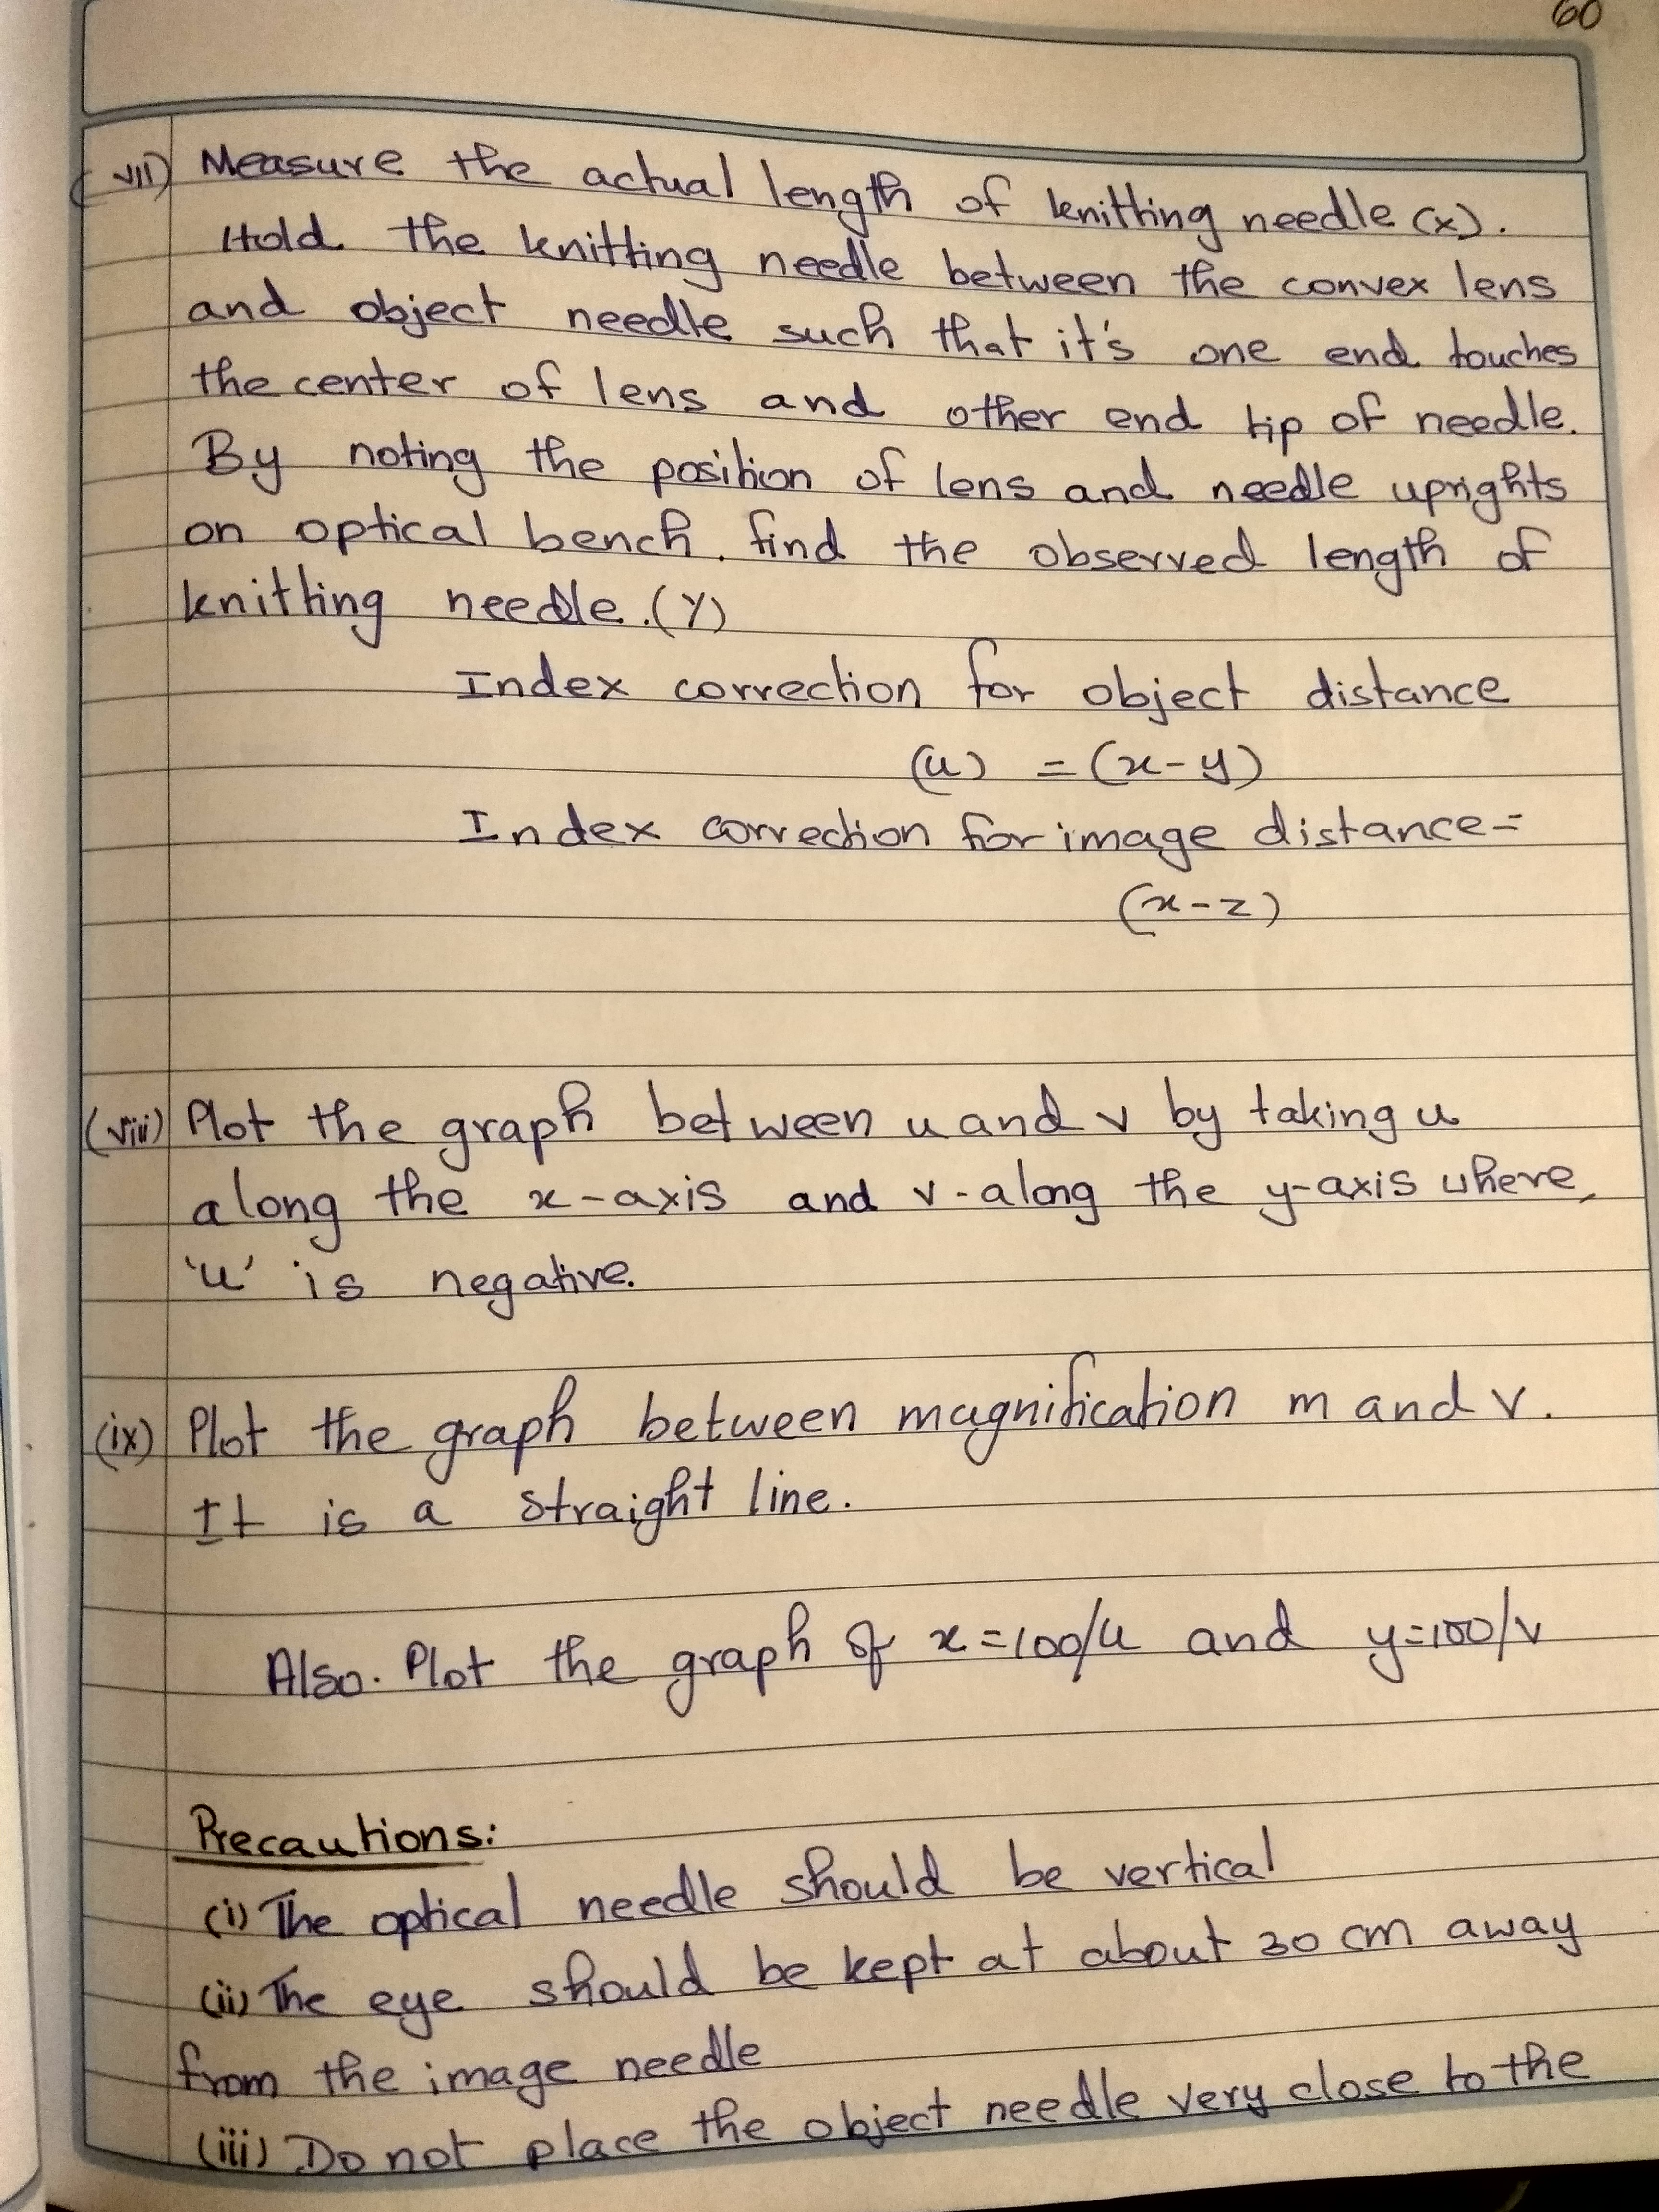 60
(vii) Measure the actual length of knitting needle (x).
Hold the knitting needle between the convex lens
and object needle such that it's one end touches
the center of lens and other end tip of needle.
By noting the position of lens and needle uprights
on optical bench. find the observed length of
knitting needle.(Y)
Index correction for object distance
(u) = (x-y)
Index correction for image distance=
(x-z)
(viii) Plot the graph between u and v by taking u
along the x-axis and v-along the y-axis where,
'u' is negative.
(ix) Plot the graph between magnification m and v.
It is a straight line.
Also. Plot the graph of x=100/u and y=100/v
Precautions:
(i) The optical needle should be vertical
(ii) The eye should be kept at about 30 cm away
from the image needle
(iii) Do not place the object needle very close to the